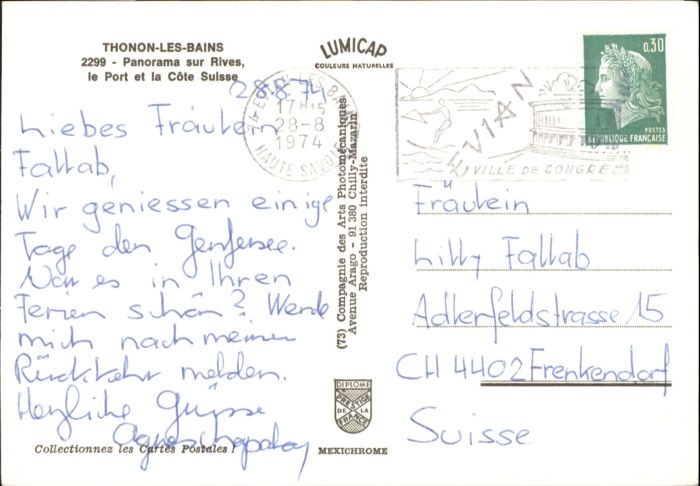 THONON-LES-BAINS
2299 - Panorama sur Rives,
le Port et la Côte Suisse
LUMICAP
COULEURS NATURELLES
28.8.74
Liebes Fräulein
Fallab,
Wir geniessen einige
Tage den Genfersee.
War es in Ihren
Ferien schön? Werde
mich nach meiner
Rückkehr melden.
Herzliche Grüsse
Agnes
Collectionnez les Cartes Postales !
74 EVIAN-LES-BAINS
17H15
28-8
1974
HAUTE SAVOIE
(73) Compagnie des Arts Photomécaniques
Avenue Arago - 91 380 Chilly-Mazarin
Reproduction interdite
DIPLOME
PRESTIGE
DE LA
FRANCE
MEXICHROME
EVIAN
VILLE DE CONGRÈ
0,30
POSTES
RÉPUBLIQUE FRANÇAISE
Fräulein
Lilly Fallab
Adlerfeldstrasse 15
CH 4402 Frenkendorf
Suisse